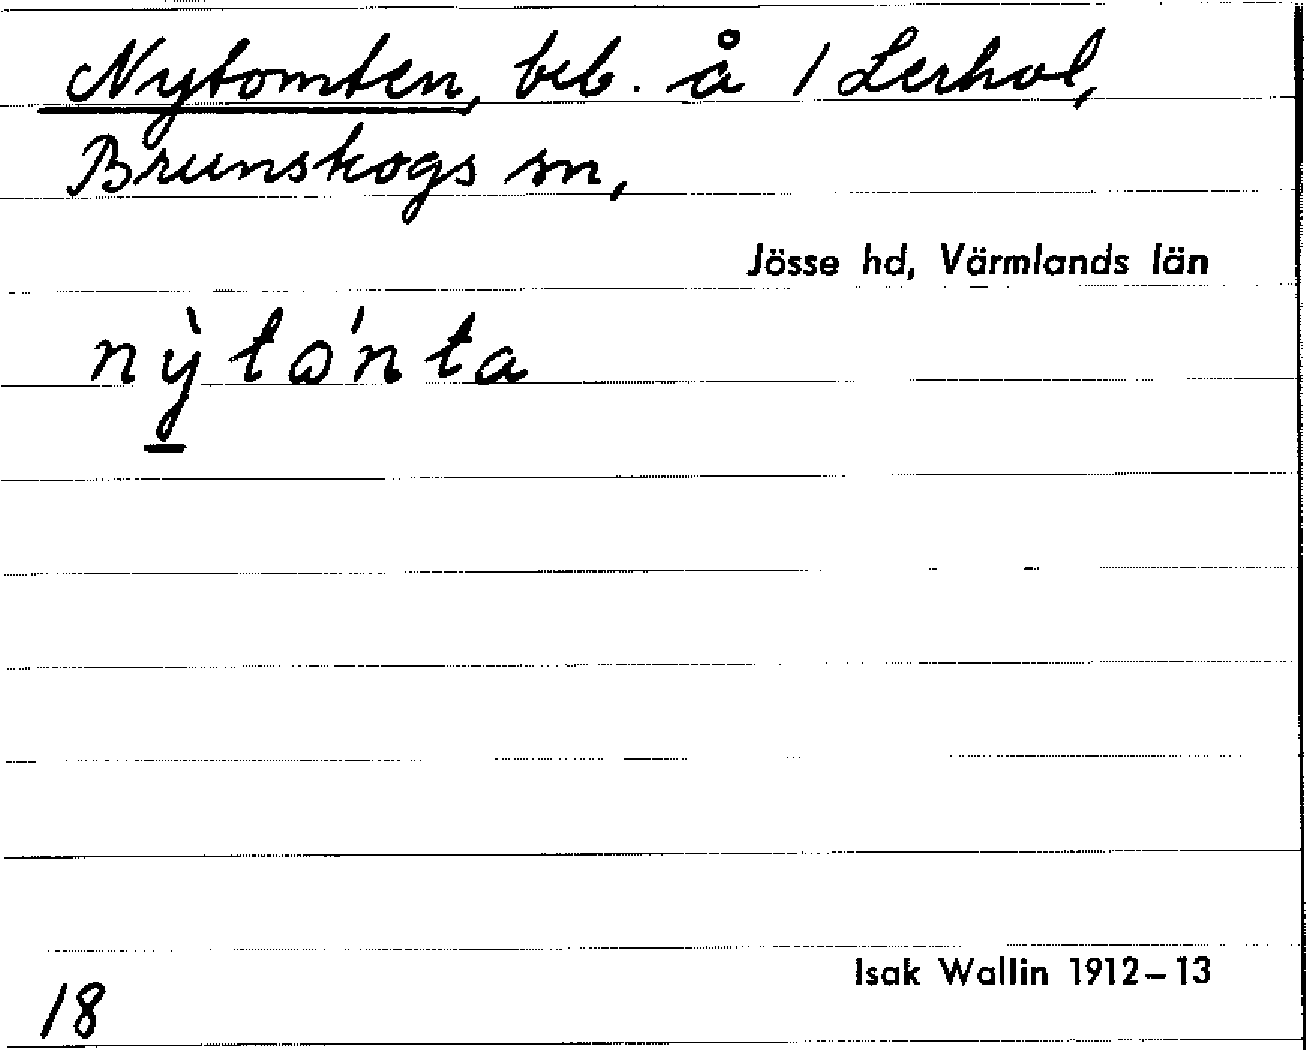 Nytomten, beb. å 1 Lerhol,
Brunskogs sn,
Jösse hd, Värmlands län
nỳ̱tɷ́nta
Isak Wallin 1912–13
18